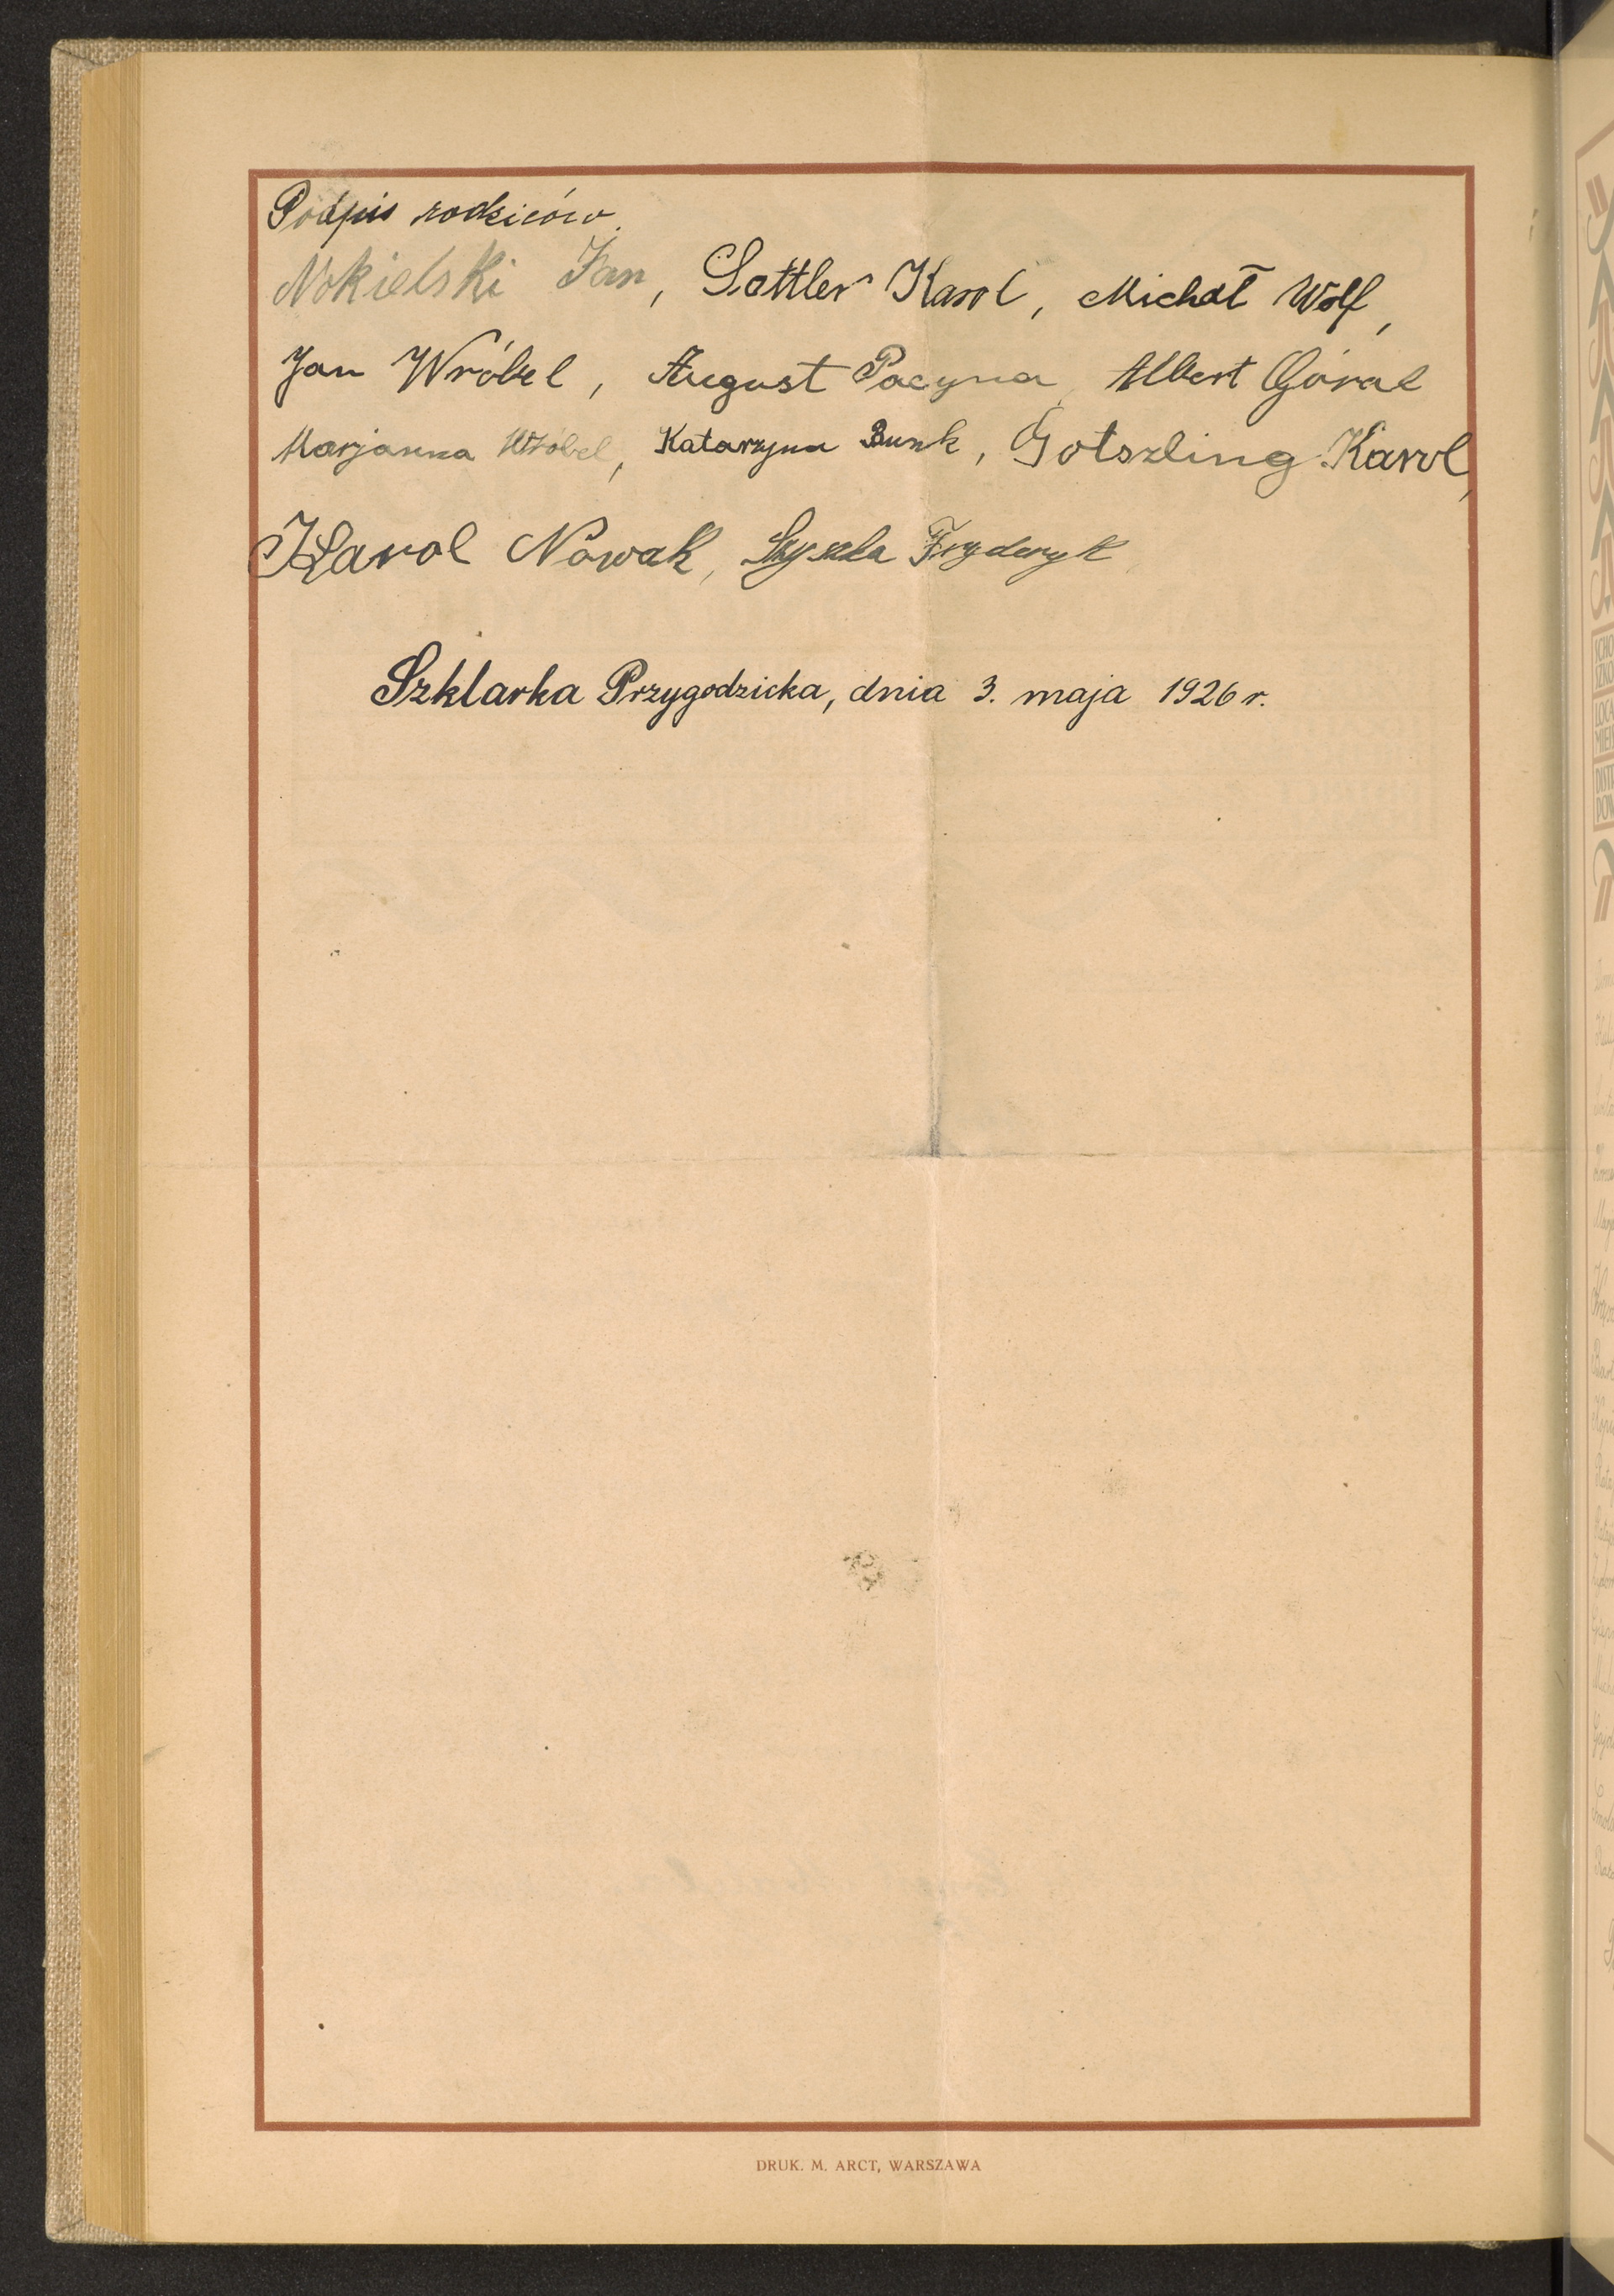 Podpis rodziców.
Nokielski Jan, Sattler Karol, Michał Wolf,
Jan Wróbel, August Pacyna, Albert Góral
Marjanna Wróbel, Katarzyna Bunk, Gotszling Karol,
Karol Nowak, Fryderyk
Szklarka Przygodzicka, dnia 3. maja 1926 r.
DRUK. M. ARCT, WARSZAWA